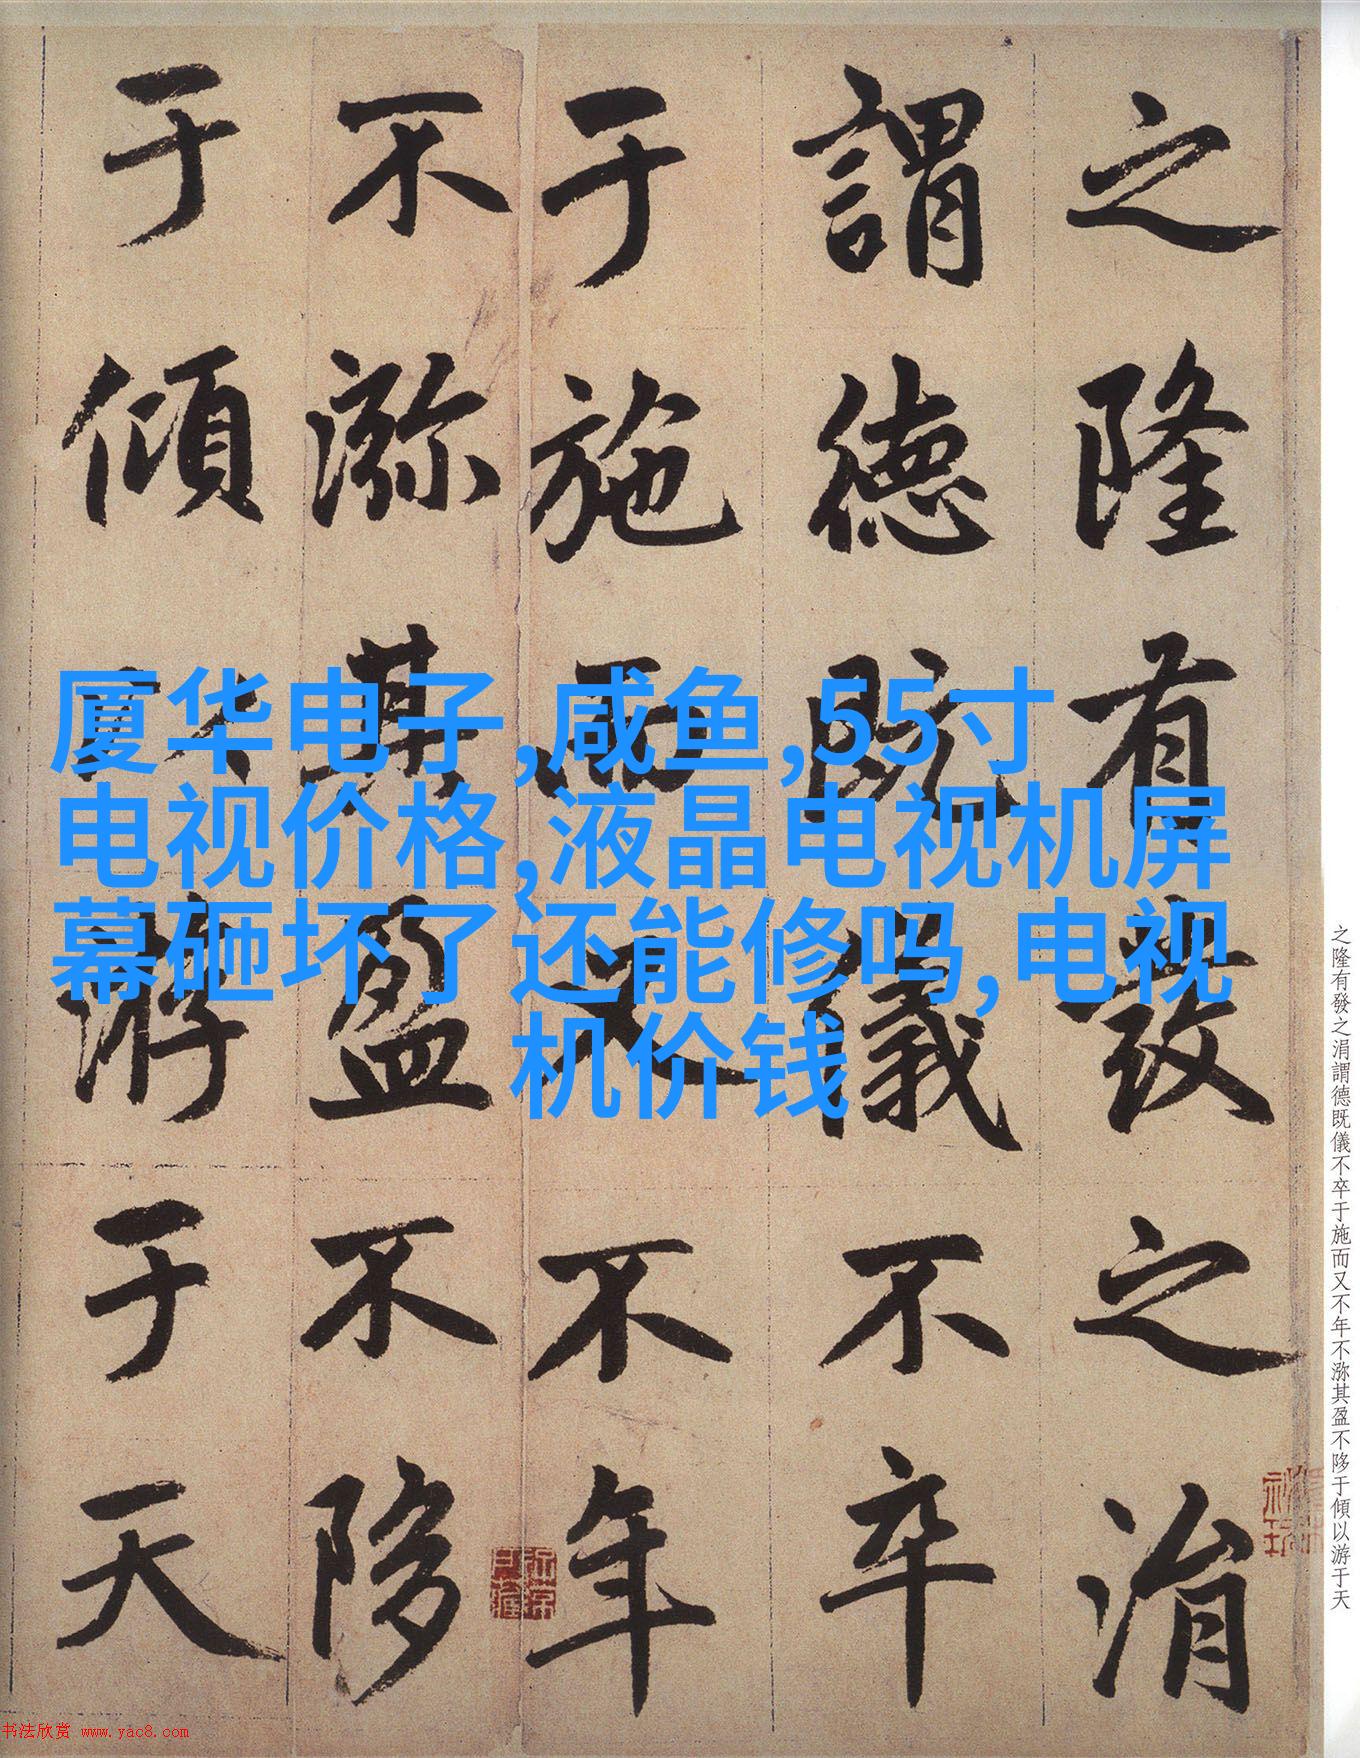 厦华电子,咸鱼,55寸
电视价格,液晶电视机屏
幕砸坏了还能修吗,电视
机价钱
之隆有發之涓
謂德既儀不卒
于施而又不年
不㳽其盈不陊
于傾以游于天
之隆有發之涓謂德既儀不卒于施而又不年不㳽其盈不陊于傾以游于天
书法欣赏 www.yac8.com